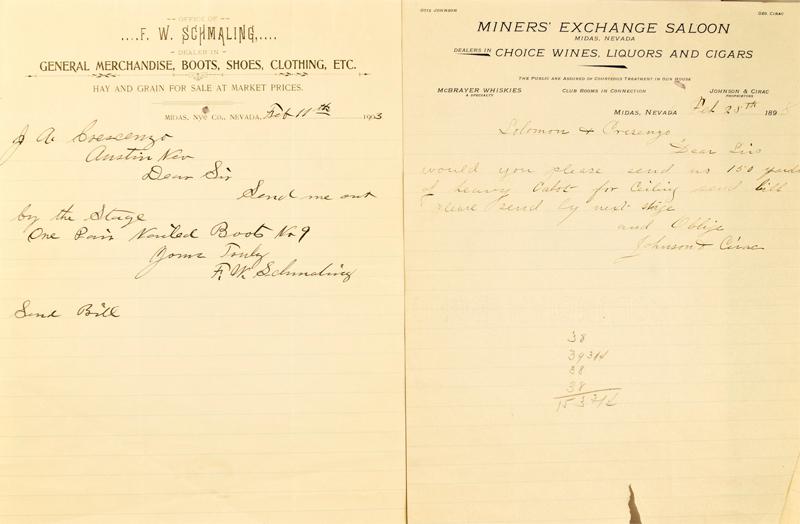 OFFICE OF
....F. W. SCHMALING,....
DEALER IN
GENERAL MERCHANDISE, BOOTS, SHOES, CLOTHING, ETC.
HAY AND GRAIN FOR SALE AT MARKET PRICES.
MIDAS, Nye Co., NEVADA, Feb 11th 1903
J A. Crescenzo
Austin Nev
Dear Sir
Send me out
by the Stage
One Pair Nailed Boots No 9
Yours Truly
F. W. Schmaling
Send Bill
OTIS JOHNSON
GEO. CIRAC
MINERS' EXCHANGE SALOON
MIDAS, NEVADA
DEALERS IN CHOICE WINES, LIQUORS AND CIGARS
THE PUBLIC ARE ASSURED OF COURTEOUS TREATMENT IN OUR HOUSE
McBRAYER WHISKIES
A SPECIALTY
CLUB ROOMS IN CONNECTION
JOHNSON & CIRAC
PROPRIETORS
MIDAS, NEVADA Feb 28th 189
Solomon & Cresenzo
Dear Sirs
would you please send us 150 yards
of heavy for Ceiling send bill
please send by next stage
and Oblige
Johnson & Cirac
38
39 3/4
38
38
153 3/4